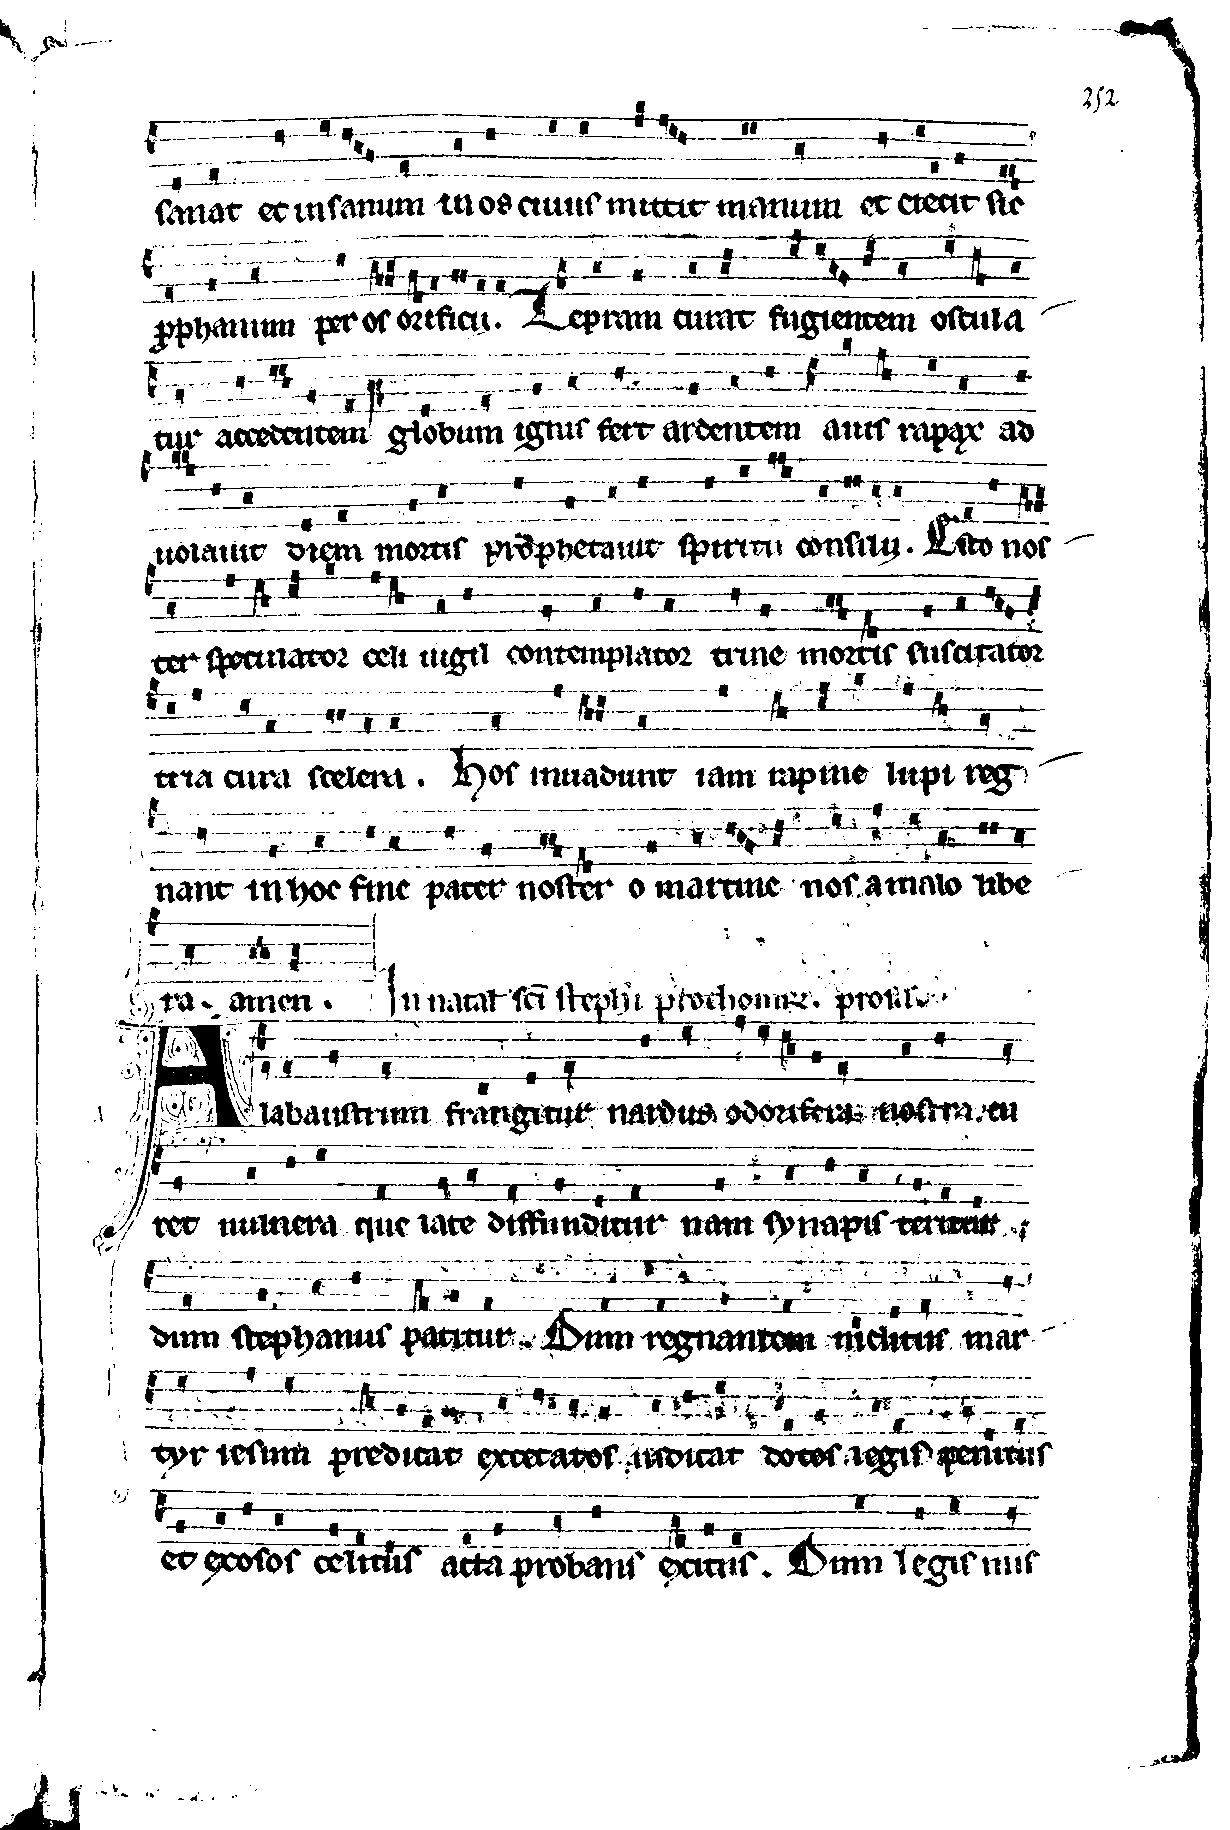 252
sanat et insanum in os cuius mittit manum et eiecit sic
prophanum per os orificii. Lepram curat fugientem oscula
tur accedentem globum ignis fert ardentem auis rapax ad
uolauit diem mortis prophetauit spiritu consilij. Esto nos
ter speculator celi uigil contemplator trine mortis suscitator
tria cura scelera. Hos inuadunt iam rapine lupi reg
nant in hoc fine pater noster o martine nos a malo libe
ra. amen. In natal sci stephi prothomr. prosa
Alabaustrum frangitur nardus odorifera nostra cu
ret uulnera que late diffunditur nam synapis teritur
dum stephanus patitur. Dum regnantem inclitus mar
tyr iesum predicat excecatos iudicat dotos legis penitus
et exosos celitus acta probans exitus. Dum legis uus